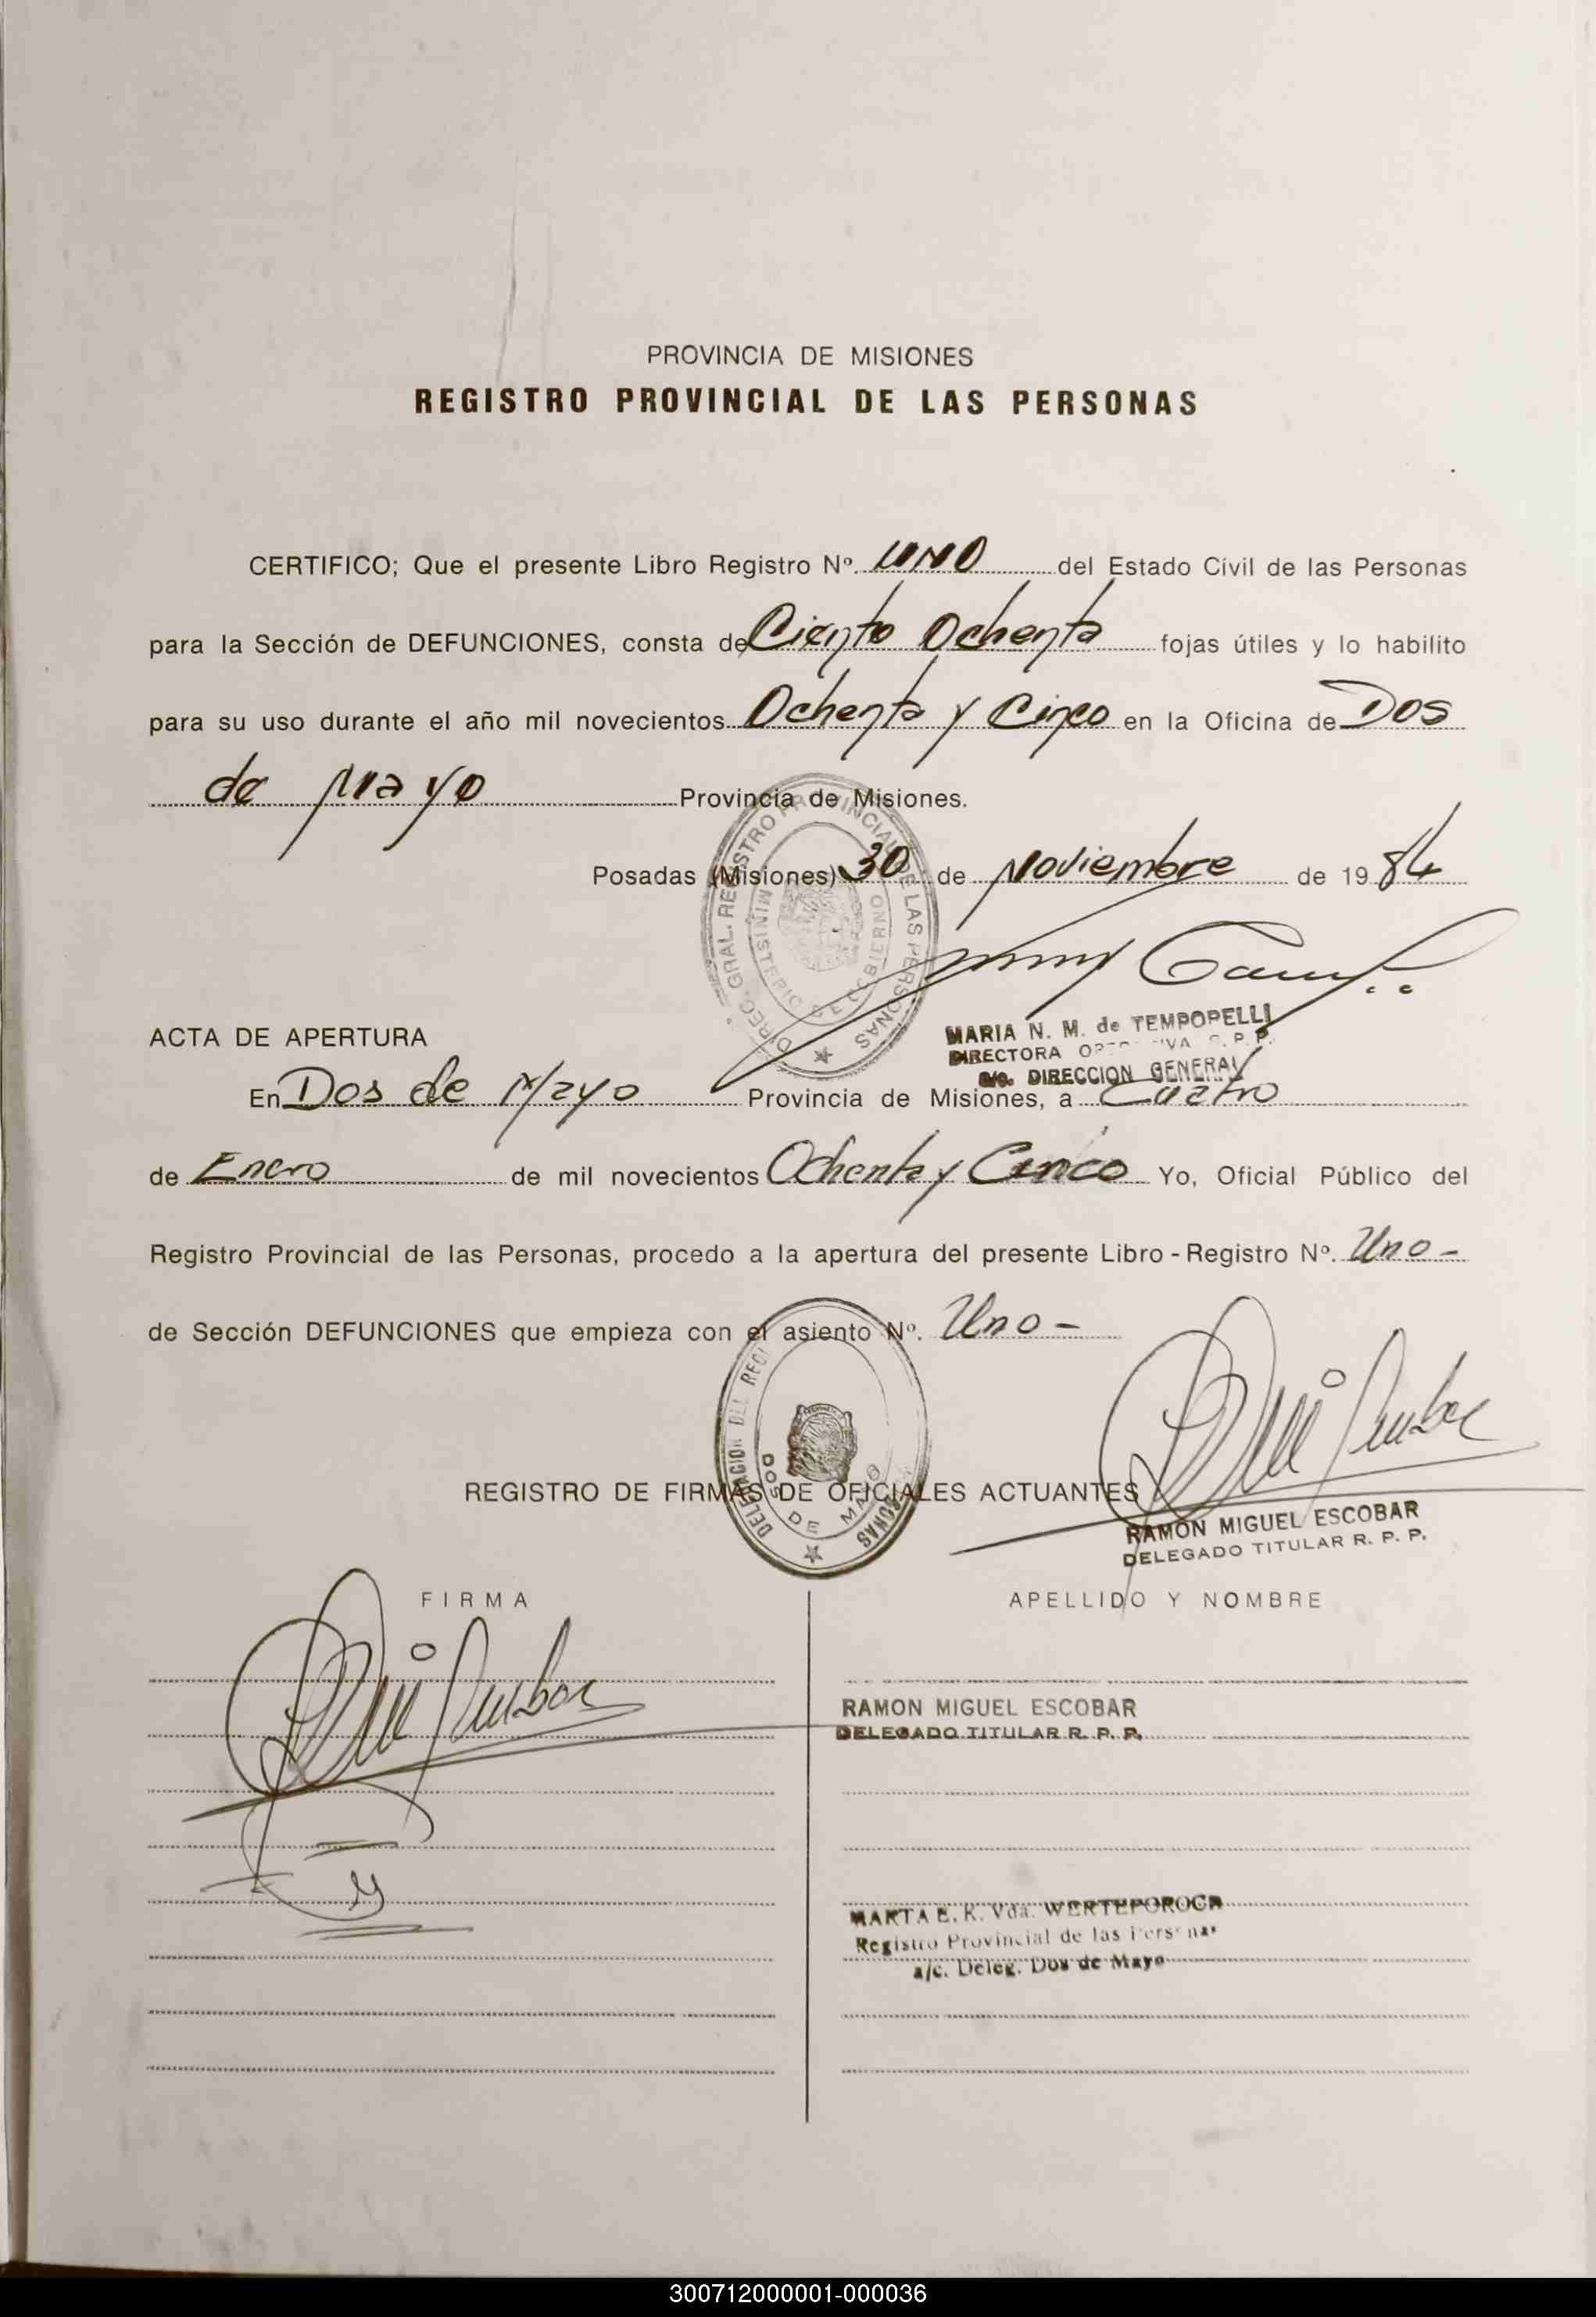 PROVINCIA DE MISIONES
REGISTRO PROVINCIAL DE LAS PERSONAS
CERTIFICO; Que el presente Libro Registro Nº. UNO del Estado Civil de las Personas
para la Sección de DEFUNCIONES, consta de Ciento Ochenta fojas útiles y lo habilito
para su uso durante el año mil novecientos Ochenta y Cinco en la Oficina de Dos
de Mayo Provincia de Misiones.
Posadas (Misiones) 30 de Noviembre de 1984
DIREC. GRAL. REGISTRO PROVINCIAL DE LAS PERSONAS
MINISTERIO DE GOBIERNO
MARIA N. M. de TEMPOPELLI
DIRECTORA R. P. P.
a/c. DIRECCION GENERAL
ACTA DE APERTURA
En Dos de Mayo Provincia de Misiones, a Cuatro
de Enero de mil novecientos Ochenta y Cinco Yo, Oficial Público del
Registro Provincial de las Personas, procedo a la apertura del presente Libro - Registro Nº. Uno -
de Sección DEFUNCIONES que empieza con el asiento Nº. Uno -
DELEGACION DEL
DOS DE MAYO
RAMON MIGUEL ESCOBAR
DELEGADO TITULAR R. P. P.
REGISTRO DE FIRMAS DE OFICIALES ACTUANTES
FIRMA APELLIDO Y NOMBRE
RAMON MIGUEL ESCOBAR
DELEGADO TITULAR R. P. P.
MARTA E. R. Vda.
Registro Provincial de las Personas
a/c. Deleg. Dos de Mayo
300712000001-000036